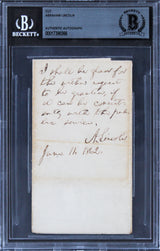 BECKETT
CUT
ABRAHAM LINCOLN
AUTHENTIC AUTOGRAPH
BECKETT
I shall be glad for
the within request
to be granted, if
it can be consist-
ently with the pub-
lic service.
A. Lincoln
June 14. 1862.